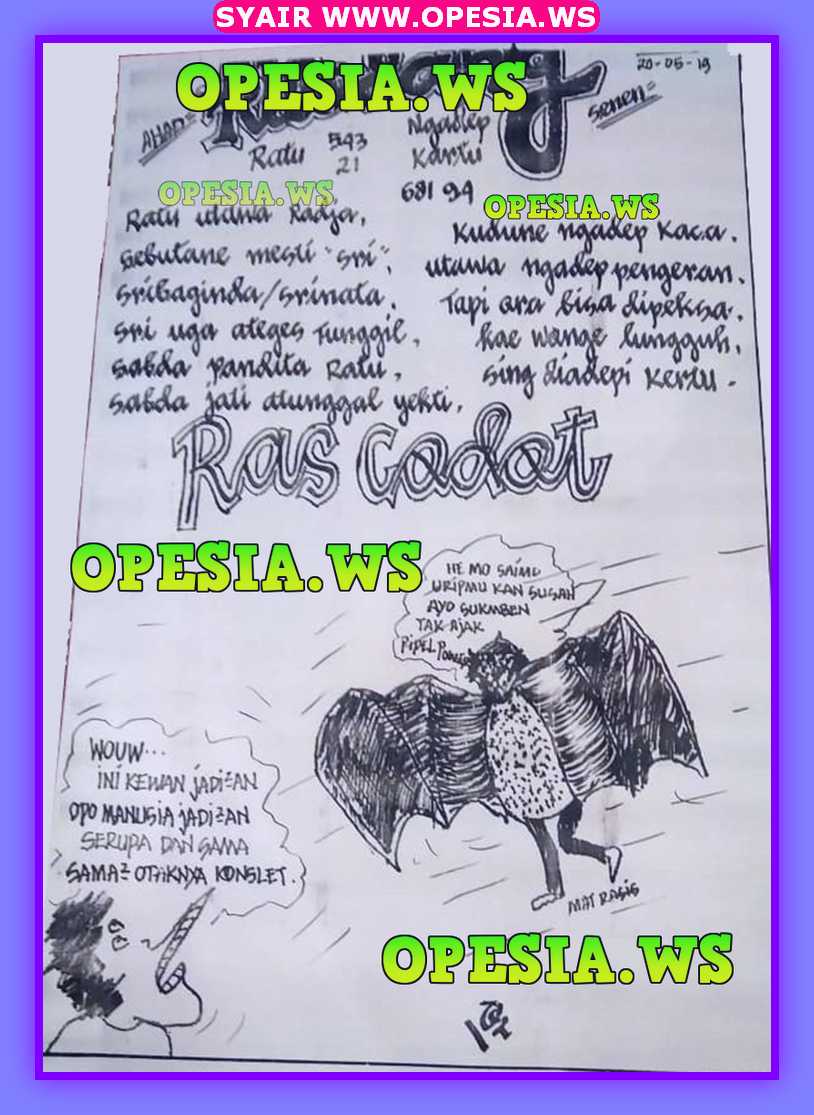 SYAIR WWW.OPESIA.WS
OPESIA.WS
20-05-19
AHAD=
Senen=
Ratu 543
21
Ngadep
Kartu
681 94
OPESIA.WS
OPESIA.WS
Ratu utawa Radja,
Sebutane mesti "sri",
Sribaginda/srinata.
Sri uga ateges Tunggil,
Sabda Pandita Ratu,
Sabda jati atunggal yekti,
Kudune ngadep Kaca.
utawa ngadep pengeran.
Tapi ora bisa dipeksa.
kae wange lungguh,
sing diadepi Kertu -
Ras Cadat
OPESIA.WS
HE MO SAIMU
URIPMU KAN SUSAH
AYO SUKMBEN
TAK AJAK
PIPEL
WOUW...
INI KEWAN JADI2AN
OPO MANUSIA JADI2AN
SERUPA DAN SAMA
SAMA2 OTAKNYA KONSLET.
MAT RASIS
OPESIA.WS